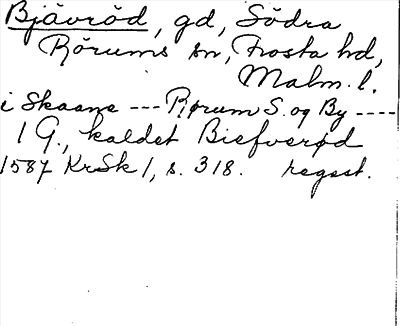 Bjävröd, gd, Södra
Rörums sn, Frosta hd,
Malm. l.
i Skaane --- Rørum S. og By ----
1 G., kaldet Biefverød
1587 KrSk 1, s. 318. regest.